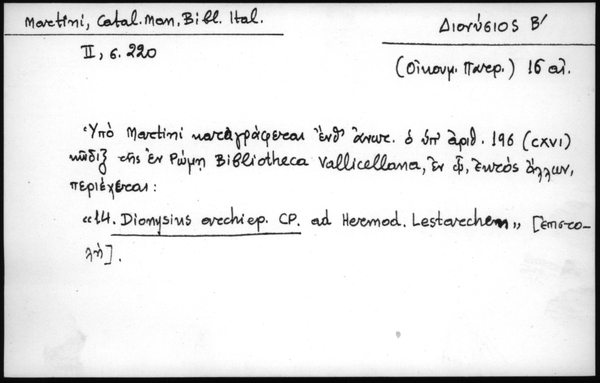 Martini, Catal. Man. Bibl. Ital.
II, σ. 220
Διονύσιος Β′
(Οἰκουμ. Πατρ.) 16 αἰ.
Ὑπὸ Martini καταγράφεται ἔνθ' ἄνωτ. ὁ ὑπ' ἀριθ. 196 (CXVI)
κῶδιξ τῆς ἐν Ρώμῃ Bibliotheca Vallicellana, ἐν ᾧ, ἐκτὸς ἄλλων,
περιέχεται:
«14. Dionysius archiep. CP. ad Hermod. Lestarchem» [ἐπιστο-
λὴ].